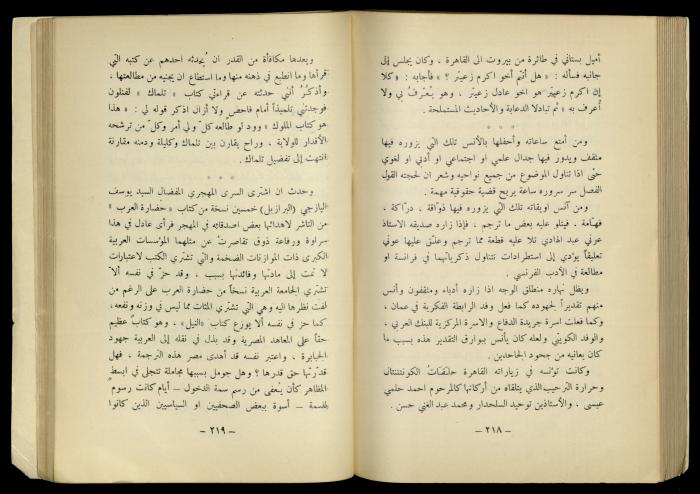 أميل بستاني في طائرة من بيروت الى القاهرة ، وكان يجلس إلى
جانبه فسأله : « هل أنتم أخو اكرم زعيتر ؟ » فأجابه : « كلا
إن اكرم زعيتر هو اخو عادل زعيتر ، وهو يُعرف بي ولا
أُعرف به » ثم تبادلا الدعابة والأحاديث المستملحة .
* * *
ومن أمتع ساعاته وأحفلها بالأنس تلك التي يزوره فيها
مثقف ويدور فيها جدال علمي او اجتماعي او أدبي او لغوي
حتى اذا تناول الموضوع من جميع نواحيه وشعر ان لحجته القول
الفصل سر سروره ساعة يربح قضية حقوقية مهمة .
ومن آنس اويقاته تلك التي يزوره فيها ذوّاقة ، درّاكة ،
فهّامة ، فيتلو عليه بعض ما ترجم ، فإذا زاره صديقه الاستاذ
عوني عبد الهادي تلا عليه قطعة مما ترجم وعلّق عليها عوني
تعليقاً يؤدي إلى استطرادات تتناول ذكرياتهما في فرنسة او
مطالعة في الأدب الفرنسي .
ويظل نهاره منطلق الوجه اذا زاره أدباء ومثقفون وأنس
منهم تقديراً لجهوده كما فعل وفد الرابطة الفكرية في عمان ،
وكما فعلت اسرة جريدة الدفاع والاسرة المركزية للبنك العربي ،
والوفد الكويتي ولعله كان يأنس ببوارق التقدير هذه بسبب ما
كان يعانيه من جحود الجاحدين .
وكانت تؤنسه في زياراته القاهرة حلقات الكونتننتال
وحرارة الترحيب الذي يتلقاه من أركانها كالمرحوم احمد حلمي
عيسى ، والأستاذين توحيد السلحدار ومحمد عبد الغني حسن .
– ٢١٨ –
وبعدها مكافأة من القدر ان يُحدثه احدهم عن كتبه التي
قرأها وما انطبع في ذهنه منها وما استطاع ان يجنيه من مطالعتها ،
وأذكرُ أنني حدثته عن قراءتي كتاب « تلماك » لفنلون
فوجدتني تلميذاً أمام فاحصٍ ولا أزال اذكر قوله لي : « هذا
هو كتاب الملوك » وود لو طالعه كلّ ولي أمر وكلّ من ترشحه
الأقدار للولاية ، وراح يقارن بين تلماك وكليلة ودمنه مقارنة
انتهت إلى تفضيل تلماك .
* * *
وحدث ان اشترى السرى المهجري المفضال السيد يوسف
اليازجي (البرازيل) خمسين نسخة من كتاب « حَضارة العرب »
من الناشر لاهدائها بعض اصدقائه في المهجر فرأى عادل في هذا
سراوة ورفاعة ذوق تقاصرت عن مثلهما المؤسسات العربية
الكبرى ذات الموازنات الضخمة والتي تشتري الكتب لاعتبارات
لا تمت إلى مادتها وفائدتها بسبب ، وقد حزّ في نفسه ألاّ
تشتري الجامعة العربية نسخاً من حضارة العرب على الرغم من
لفت نظرها اليه وهي التي تشتري المئات مما ليس في وزنه ونفعه،
كما حز في نفسه ألا يوزع كتاب «النيل» ، وهو كتابٌ عظيم
حقاً على المعاهد المصرية وقد بذل في نقله إلى العربية جهود
الجبابرة ، واعتبر نفسه قد أهدى مصر هذه الترجمة ، فهل
قدّرتها حق قدرها ؟ وهل جومل بسببها مجاملة تتجلى في ابسط
المظاهر كأن يُعفى من رسم سمة الدخول – أيام كانت رسومٌ
للسمة – أسوة ببعض الصحفيين او السياسيين الذين كانوا
– ٢١٩ –